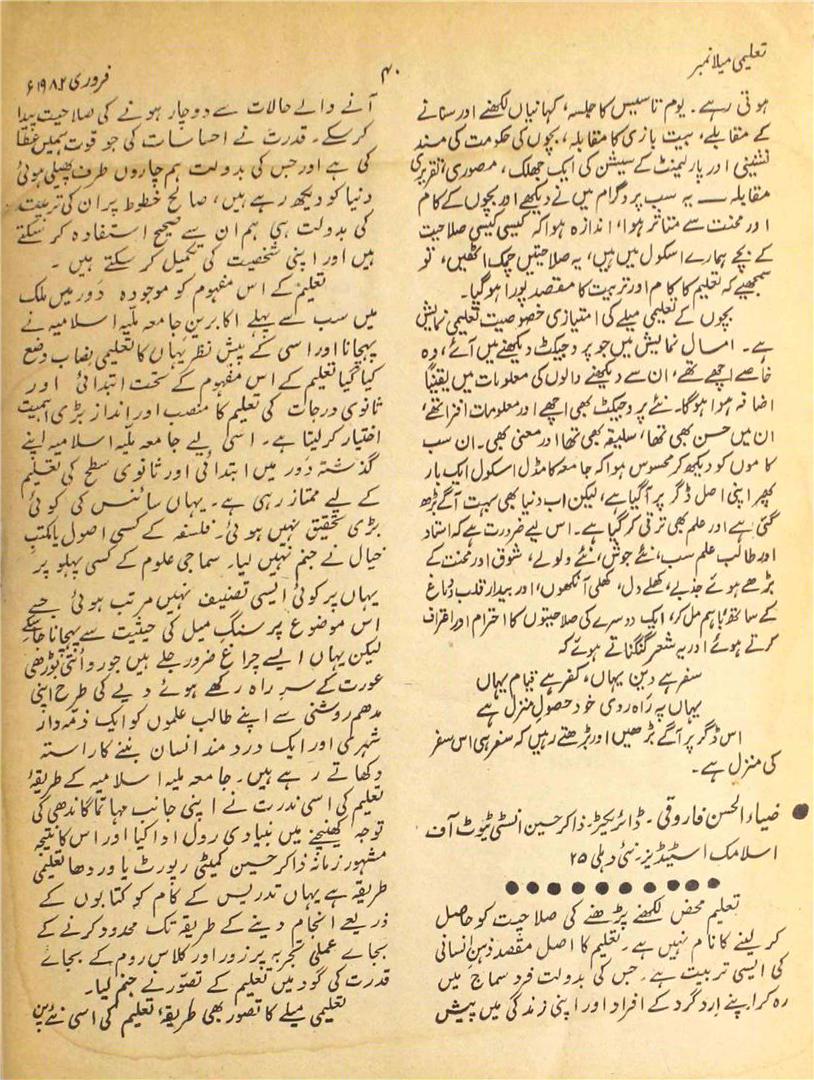 تعلیمی میلا نمبر
۴۰
فروری ۱۹۸۲ء
ہوتی رہے۔ یوم تاسیس کا جلسہ، کہانیاں لکھنے اور سنانے
کے مقابلے، بیت بازی کا مقابلہ، بچوں کی حکومت کی مسند
نشینی اور پارلیمنٹ کے سیشن کی ایک جھلک، مصوری، تقریری
مقابلہ — یہ سب پروگرام میں نے دیکھے اور بچوں کے کام
اور محنت سے متاثر ہوا، اندازہ ہوا کہ کیسی کیسی صلاحیت
کے بچے ہمارے اسکول میں ہیں، یہ صلاحیتیں چمک اٹھیں، تو
سمجھیے کہ تعلیم کا کام اور تربیت کا مقصد پورا ہوگیا۔
بچوں کے تعلیمی میلے کی امتیازی خصوصیت تعلیمی نمایش
ہے۔ امسال نمایش میں جو پروجیکٹ دیکھنے میں آئے، وہ
خاصے اچھے تھے، ان سے دیکھنے والوں کی معلومات میں یقیناً
اضافہ ہوا ہوگا۔ نئے پروجیکٹ بھی اچھے اور معلومات افزا تھے،
ان میں حسن بھی تھا، سلیقہ بھی تھا اور معنی بھی۔ ان سب
کاموں کو دیکھ کر محسوس ہوا کہ جامعہ کا مڈل اسکول ایک بار
پھر اپنی اصل ڈگر پر آگیا ہے، لیکن اب دنیا بھی بہت آگے بڑھ
گئی ہے اور علم بھی ترقی کر گیا ہے۔ اس لیے ضرورت ہے کہ استاد
اور طالب علم سب، نئے جوش، نئے ولولے، شوق اور محنت کے
بڑھے ہوئے جذبے، کھلے دل، کھلی آنکھوں، اور بیدار قلب و دماغ
کے ساتھ، باہم مل کر، ایک دوسرے کی صلاحیتوں کا احترام اور اعتراف
کرتے ہوئے اور یہ شعر گنگناتے ہوئے کہ
سفر ہے دین یہاں، کفر ہے قیام یہاں
یہاں پہ راہ روی خود حصولِ منزل ہے
اس ڈگر پر آگے بڑھیں اور بڑھتے رہیں کہ سفر ہی اس سفر
کی منزل ہے۔
● ضیاء الحسن فاروقی۔ ڈائریکٹر۔ ذاکر حسین انسٹی ٹیوٹ آف
اسلامک اسٹیڈیز۔ نئی دہلی ۲۵
تعلیم محض لکھنے پڑھنے کی صلاحیت کو حاصل
کر لینے کا نام نہیں ہے۔ تعلیم کا اصل مقصد ذہنِ انسانی
کی ایسی تربیت ہے۔ جس کی بدولت فرد سماج میں
رہ کر اپنے اردگرد کے افراد اور اپنی زندگی میں پیش
آنے والے حالات سے دوچار ہونے کی صلاحیت پیدا
کر سکے۔ قدرت نے احساسات کی جو قوت ہمیں عطا
کی ہے اور جس کی بدولت ہم چاروں طرف پھیلی ہوئی
دنیا کو دیکھ رہے ہیں، صالح خطوط پر ان کی تربیت
کی بدولت ہی ہم ان سے صحیح استفادہ کر سکتے
ہیں اور اپنی شخصیت کی تکمیل کر سکتے ہیں۔
تعلیم کے اس مفہوم کو موجودہ دَور میں ملک
میں سب سے پہلے اکابرینِ جامعہ ملّیہ اسلامیہ نے
پہچانا اور اسی کے پیش نظر یہاں کا تعلیمی نصاب وضع
کیا گیا تعلیم کے اس مفہوم کے تحت ابتدائی اور
ثانوی درجات کی تعلیم کا منصب اور انداز بڑی اہمیت
اختیار کر لیتا ہے۔ اسی لیے جامعہ ملّیہ اسلامیہ اپنے
گذشتہ دَور میں ابتدائی اور ثانوی سطح کی تعلیم
کے لیے ممتاز رہی ہے۔ یہاں سائنس کی کوئی
بڑی تحقیق نہیں ہوئی۔ فلسفہ کے کسی اصول یا مکتبِ
خیال نے جنم نہیں لیا۔ سماجی علوم کے کسی پہلو پر
یہاں پر کوئی ایسی تصنیف نہیں مرتب ہوئی جسے
اس موضوع پر سنگِ میل کی حیثیت سے پہچانا جاسکے
لیکن یہاں ایسے چراغ ضرور جلے ہیں جو روائتی بوڑھی
عورت کے سرِ راہ رکھے ہوئے دیے کی طرح اپنی
مدھم روشنی سے اپنے طالب علموں کو ایک ذمّہ دار
شہری اور ایک درد مند انسان بننے کا راستہ
دکھاتے رہے ہیں۔ جامعہ ملیہ اسلامیہ کے طریقۂ
تعلیم کی اسی ندرت نے اپنی جانب مہاتما گاندھی کی
توجہ کھینچنے میں بنیادی رول ادا کیا اور اس کا نتیجہ
مشہور زمانہ ذاکر حسین کمیٹی رپورٹ یا وردھا تعلیمی
طریقہ ہے یہاں تدریس کے کام کو کتابوں کے
ذریعے انجام دینے کے طریقہ تک محدود کرنے کے
بجاے عملی تجربہ پر زور اور کلاس روم کے بجاے
قدرت کی گود میں تعلیم کے تصوّر نے جنم لیا۔
تعلیمی میلے کا تصور بھی طریقۂ تعلیم کی اسی نئے پن